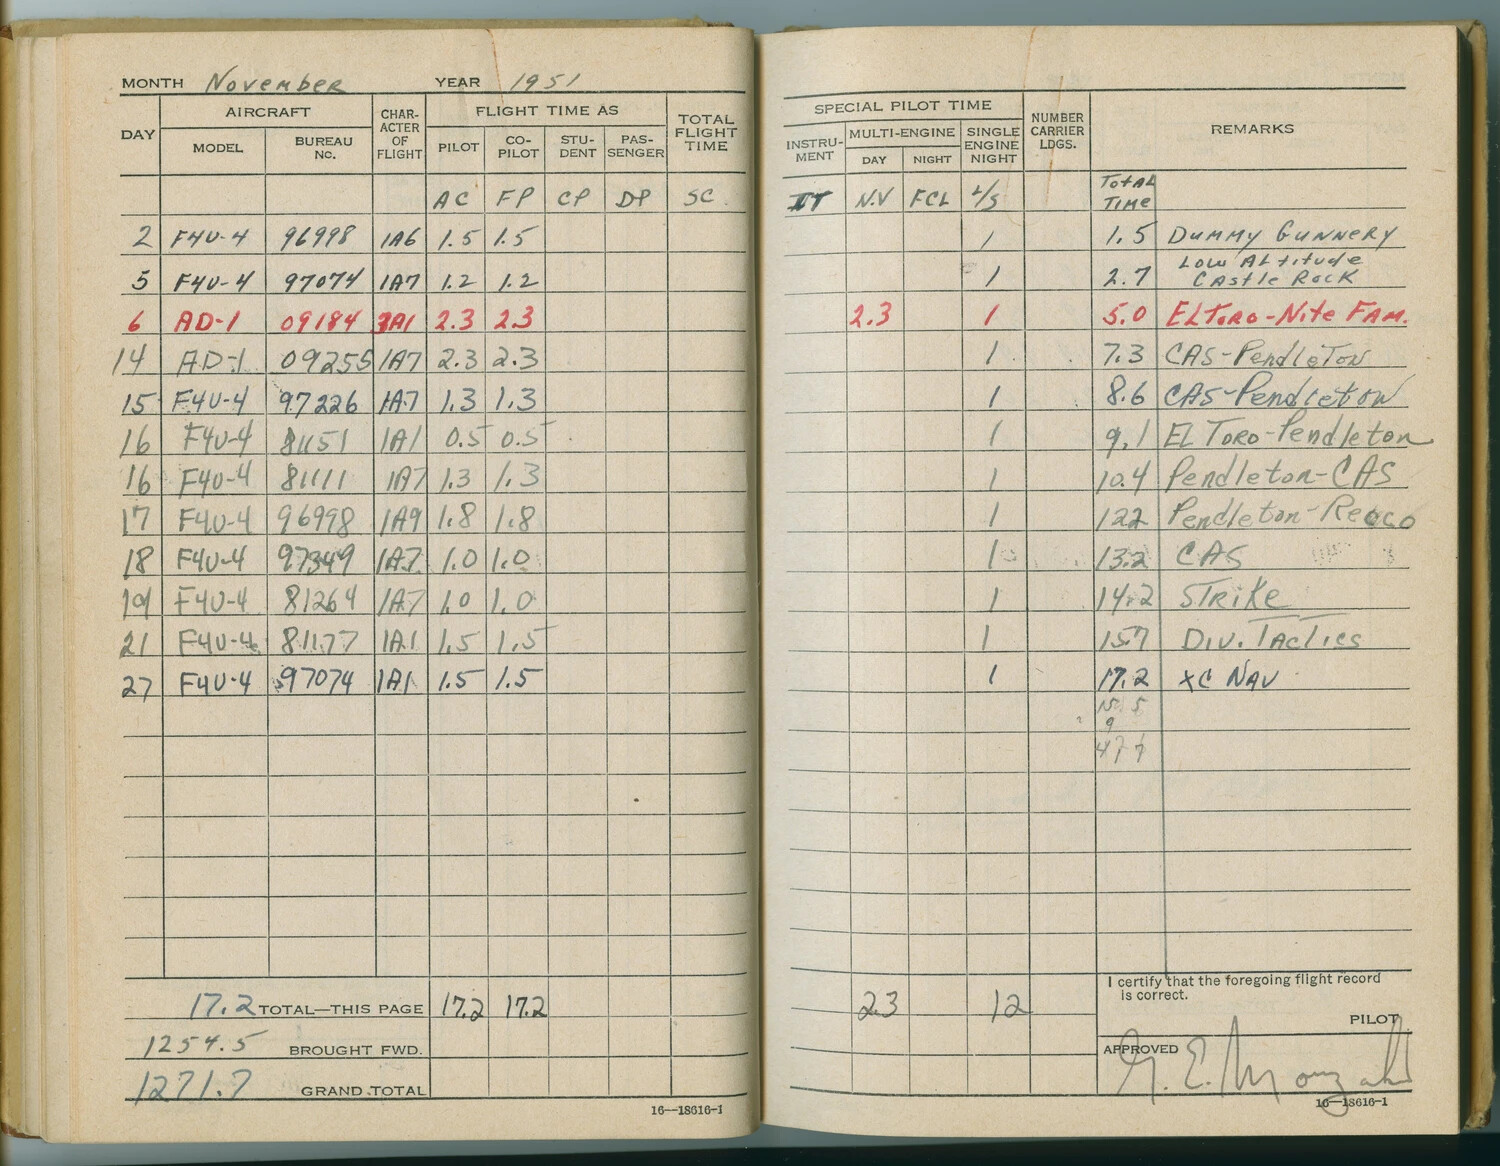 MONTH November YEAR 1951
DAY AIRCRAFT CHAR-ACTER OF FLIGHT FLIGHT TIME AS TOTAL FLIGHT TIME
MODEL BUREAU No. PILOT CO-PILOT STU-DENT PAS-SENGER
AC FP CP DP SC
2 F4U-4 96998 1A6 1.5 1.5
5 F4U-4 97074 1A7 1.2 1.2
6 AD-1 09184 3A1 2.3 2.3
14 AD-1 09255 1A7 2.3 2.3
15 F4U-4 97226 1A7 1.3 1.3
16 F4U-4 81151 1A1 0.5 0.5
16 F4U-4 81111 1A7 1.3 1.3
17 F4U-4 96998 1A9 1.8 1.8
18 F4U-4 97349 1A7 1.0 1.0
19 F4U-4 81264 1A7 1.0 1.0
21 F4U-4 81177 1A1 1.5 1.5
27 F4U-4 97074 1A1 1.5 1.5
17.2 TOTAL—THIS PAGE 17.2 17.2
1254.5 BROUGHT FWD.
1271.7 GRAND TOTAL
16—18616-1
SPECIAL PILOT TIME NUMBER CARRIER LDGS. REMARKS
INSTRU-MENT MULTI-ENGINE SINGLE ENGINE NIGHT
DAY NIGHT
N.V FCL L/S TOTAL TIME
1 1.5 Dummy Gunnery
1 2.7 Low Altitude Castle Rock
2.3 1 5.0 EL Toro-Nite FAM.
1 7.3 CAS-Pendleton
1 8.6 CAS-Pendleton
1 9.1 EL TORO-Pendleton
1 10.4 Pendleton-CAS
1 12.2 Pendleton-Recco
1 13.2 CAS
1 14.2 STRIKE
1 15.7 Div. Tactics
1 17.2 XC NAV
2.3 12
I certify that the foregoing flight record is correct.
PILOT
APPROVED
16—18616-1